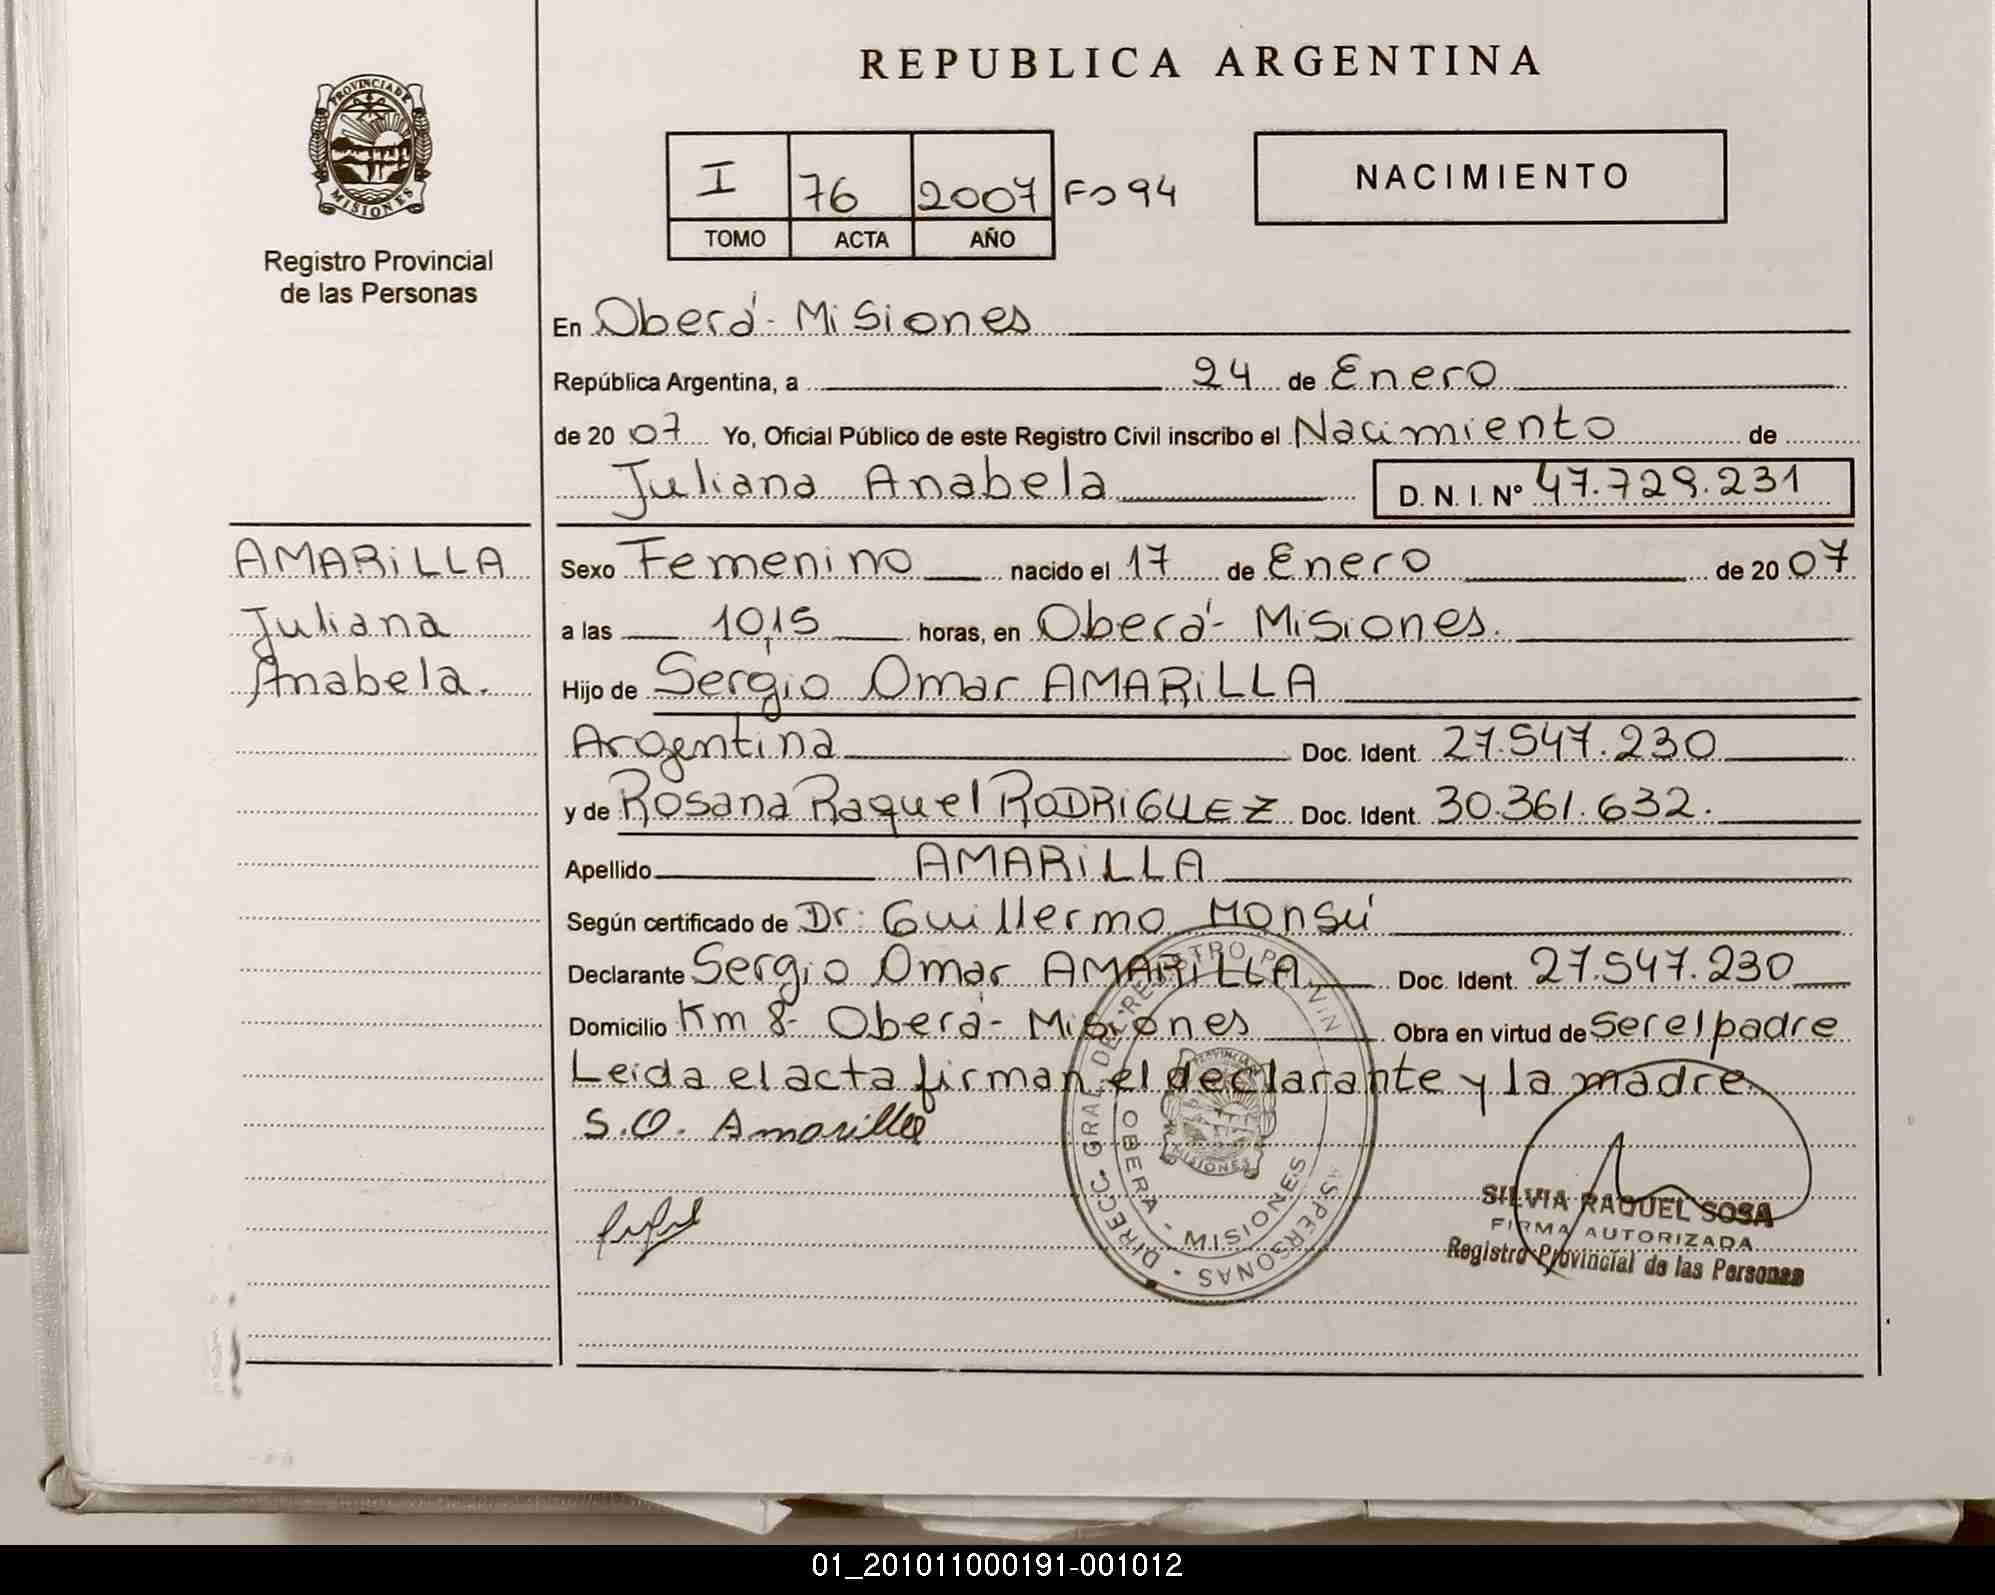 REPUBLICA ARGENTINA
PROVINCIA DE
MISIONES
Registro Provincial
de las Personas
I 76 2007 Fo 94
TOMO ACTA AÑO
NACIMIENTO
En Oberá - Misiones
República Argentina, a 24 de Enero
de 20 07 Yo, Oficial Público de este Registro Civil inscribo el Nacimiento de
Juliana Anabela D. N. I. Nº 47.729.231
AMARiLLA
Juliana
Anabela.
Sexo Femenino nacido el 17 de Enero de 20 07
a las 10,15 horas, en Oberá - Misiones.
Hijo de Sergio Omar AMARiLLA
Argentina Doc. Ident. 27.547.230
y de Rosana Raquel RODRiGUEZ Doc. Ident. 30.361.632.
Apellido AMARiLLA
Según certificado de Dr: Guillermo Monsú
Declarante Sergio Omar AMARiLLA Doc. Ident. 27.547.230
Domicilio Km 8 - Oberá - Misiones Obra en virtud de ser el padre
Leida el acta firman el declarante y la madre.
S.O. Amarilla
DIRECC. GRAL DEL REGISTRO PROVIN AS PERSONAS
OBERA - MISIONES
PROVINCIA DE
MISIONES
SILVIA RAQUEL SOSA
FIRMA AUTORIZADA
Registro Provincial de las Personas
01_201011000191-001012